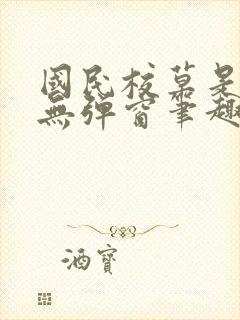 國民校草是
無彈窗筆趣
酒寶